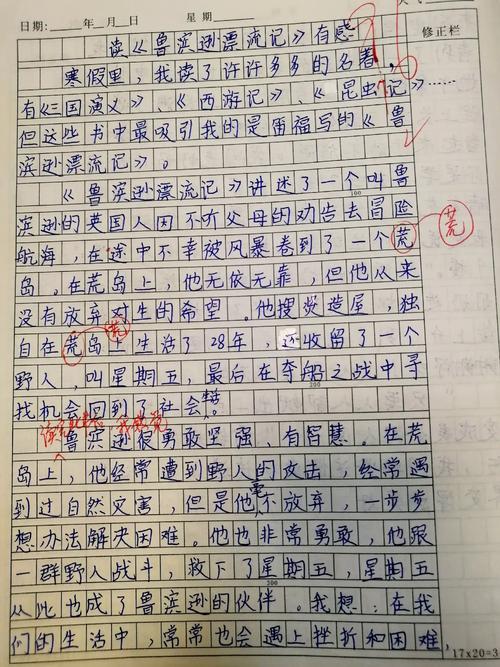 日期: 年 月 日 星期
修正栏
读《鲁滨逊漂流记》有感
寒假里,我读了许许多多的名著,
有《三国演义》、《西游记》、《昆虫记》……
但这些书中最吸引我的是雷福写的《鲁
滨逊漂流记》。
《鲁滨逊漂流记》讲述了一个叫鲁
100
滨逊的英国人因不听父母的劝告去冒险
航海,在途中不幸被风暴卷到了一个荒
荒
岛。在荒岛上,他无依无靠,但他从来
没有放弃对生的希望。他搜粮造屋,独
荒
自在荒岛上生活了28年,还收留了一个
野人,叫星期五,最后在夺船之战中寻
200
找机会回到了社会。
鲁滨逊很勇敢坚强、有智慧。在荒
岛上,他经常遭到野人的攻击,经常遇
到过自然灾害,但是他不放弃,一步步
想办法解决困难。他也非常勇敢,他跟
一群野人战斗,救下了星期五,星期五
300
从此也成了鲁滨逊的伙伴。我想:在我
们的生活中,常常也会遇上挫折和困难,
17×20=3